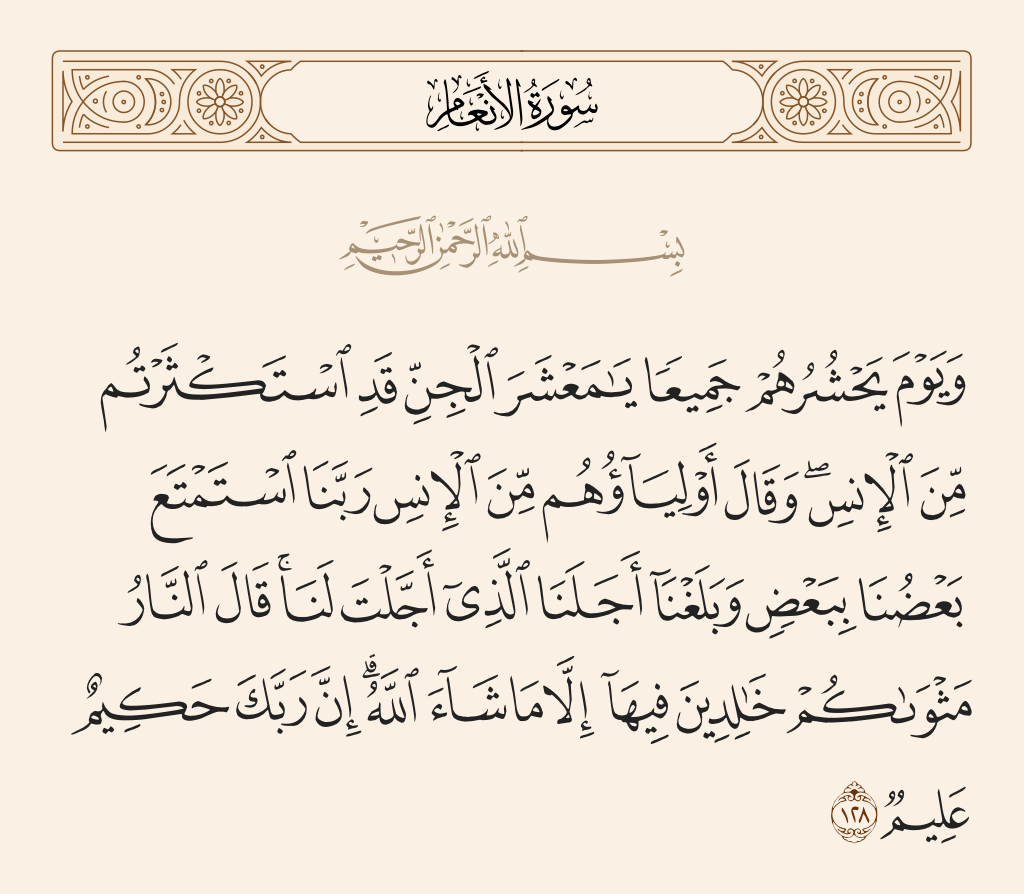 سُورَةُ الأَنْعَامِ
بِسْمِ ٱللَّهِ ٱلرَّحْمَٰنِ ٱلرَّحِيمِ
وَيَوْمَ يَحْشُرُهُمْ جَمِيعًا يَٰمَعْشَرَ ٱلْجِنِّ قَدِ ٱسْتَكْثَرْتُم
مِّنَ ٱلْإِنسِ ۖ وَقَالَ أَوْلِيَآؤُهُم مِّنَ ٱلْإِنسِ رَبَّنَا ٱسْتَمْتَعَ
بَعْضُنَا بِبَعْضٍ وَبَلَغْنَآ أَجَلَنَا ٱلَّذِىٓ أَجَّلْتَ لَنَا ۚ قَالَ ٱلنَّارُ
مَثْوَىٰكُمْ خَٰلِدِينَ فِيهَآ إِلَّا مَا شَآءَ ٱللَّهُ ۗ إِنَّ رَبَّكَ حَكِيمٌ
عَلِيمٌ ١٢٨